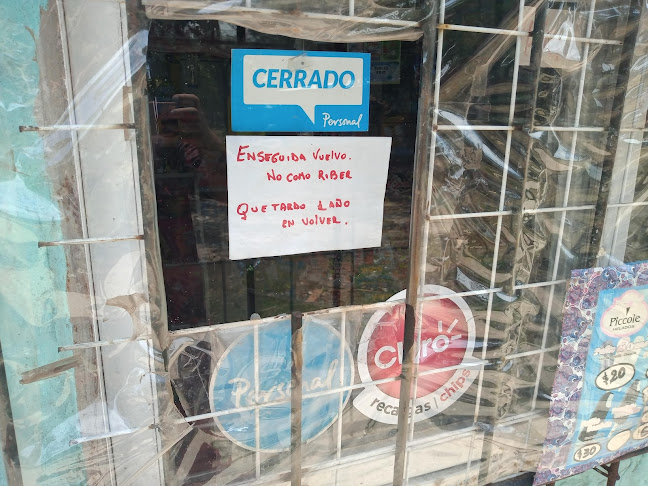 CERRADO
Personal
ENSEGUIDA VUELVO.
NO COMO RIBER
QUE TARDO 1 AÑO
EN VOLVER.
Personal
Claro
recargas | chips
Piccole
HELADOS
$20
$30